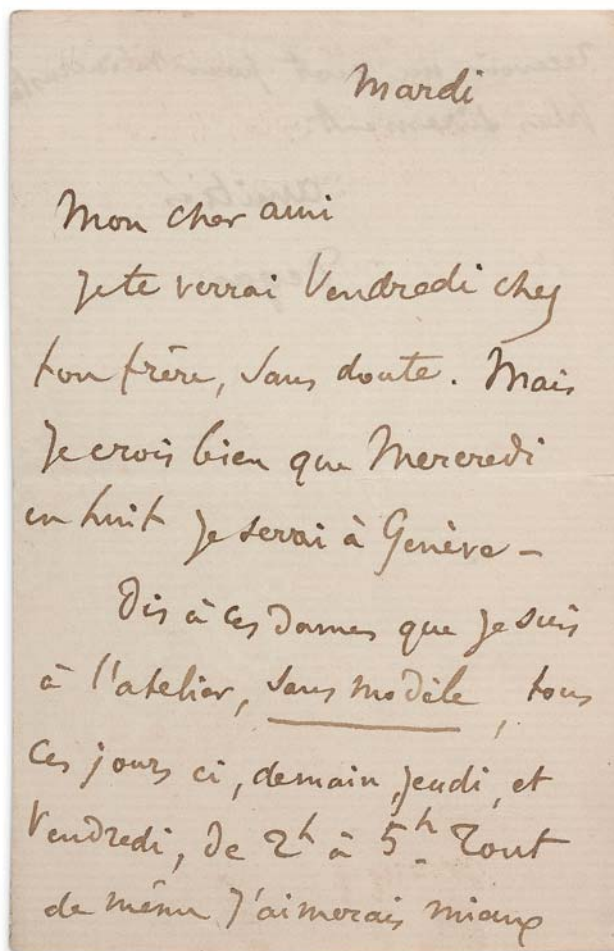 Mardi
Mon cher ami
Je te verrai Vendredi chez
ton frère, sans doute. Mais
je crois bien que Mercredi
en huit je serai à Genève –
Dis à ces dames que je suis
à l'atelier, sans modèle, tous
ces jours ci, demain, jeudi, et
Vendredi, de 2h à 5h Tout
de même j'aimerais mieux